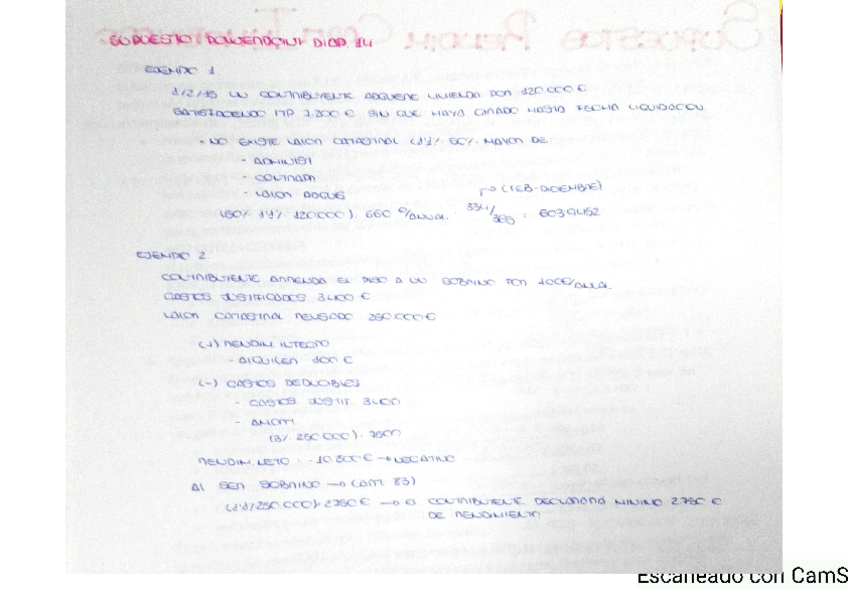 SUPUESTO DIAP. 14
EJEMPLO 1
1/2/15 UN CONTRIBUYENTE ADQUIERE VIVIENDA POR 120.000 €
SATISFACIENDO ITP 7.200 € SIN QUE HAYA GIRADO HASTA FECHA LIQUIDACION
- NO EXISTE VALOR CATASTRAL (1'1% 50% MAYOR DE
- ADMINIST
- COMPROB
- VALOR ADQUIS
(50% 1'1% 120.000) = 660 €/ANUAL. 334/365 = 603'9452
(FEB-DICIEMBRE)
EJEMPLO 2
CONTRIBUYENTE ARRIENDA EL PISO A UN SOBRINO POR 100€/ANUAL
GASTOS JUSTIFICADOS 3400 €
VALOR CATASTRAL REVISADO 250.000 €
(+) RENDIM. INTEGRO
- ALQUILER 100 €
(-) GASTOS DEDUCIBLES
- GASTOS JUSTIF. 3400
- AMORT.
(3% 250.000) = 7500
RENDIM. NETO = -10.800 € → NEGATIVO
AL SER SOBRINO → (ART. 83)
(1'1% 250.000) = 2750 € → EL CONTRIBUYENTE DECLARARA MINIMO 2.750 €
DE RENDIMIENTO
Escaneado con CamS